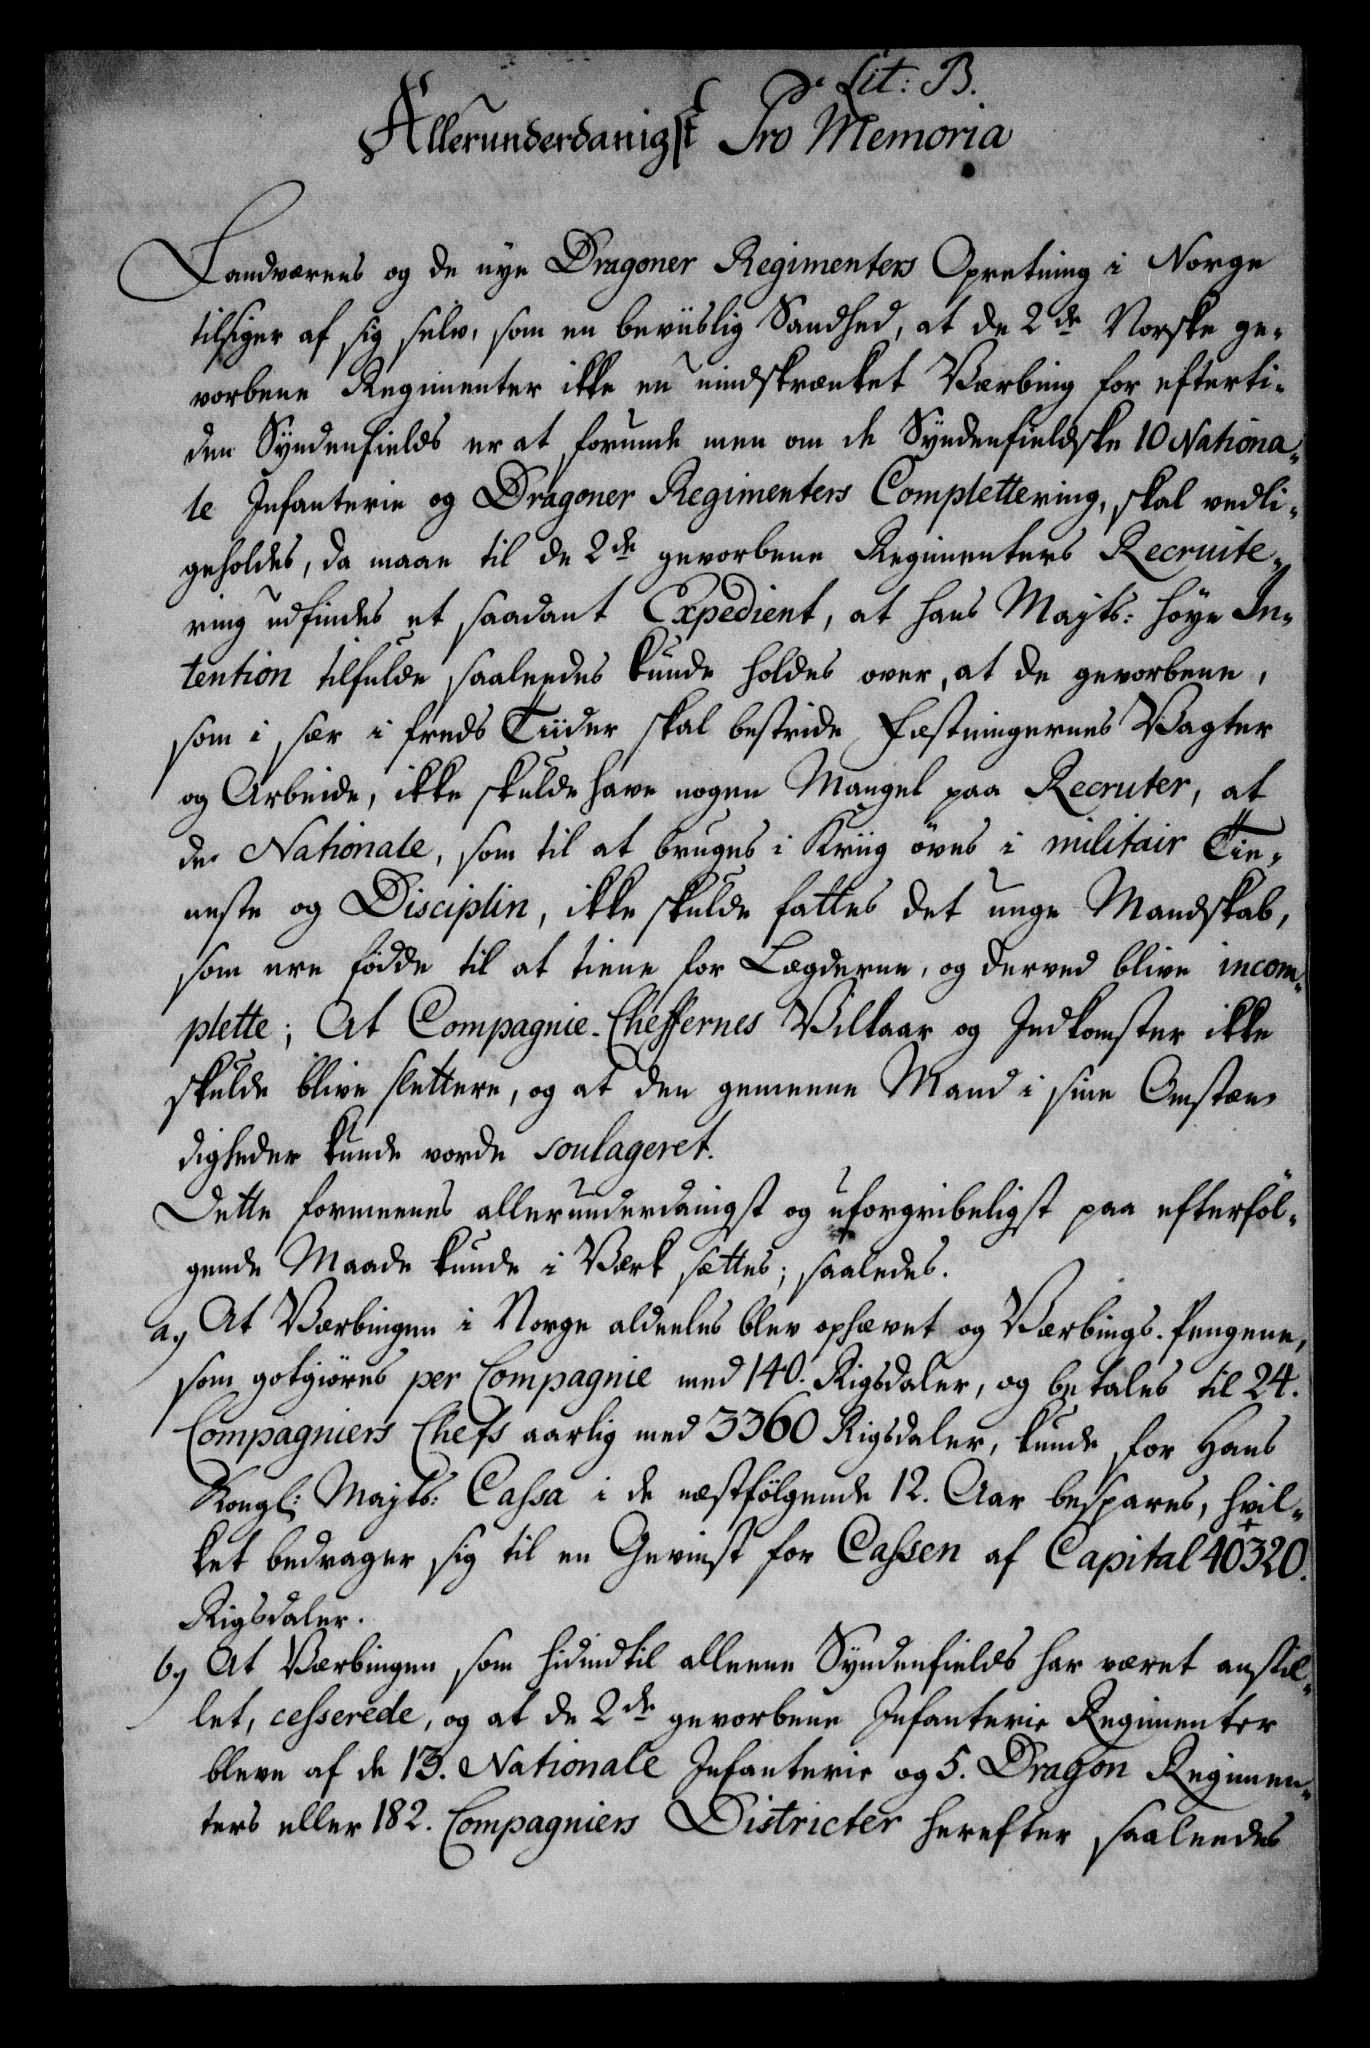 Lit: B.
Allerunderdanigst Pro Memoria
Landværnes og de nye Dragoner Regimenters Opretning i Norge
tilsiger af sig selv, som en beviislig Sandhed, at de 2de Norske ge-
vorbene Regimenter ikke en uindskrænket Værbing for efterti-
den Syndenfields er at forunde men om de Syndenfieldske 10 Nationa-
le Infanterie og Dragoner Regimenters Complettering, skal vedli-
geholdes, da maae til de 2de gevorbene Regimenters Recruite-
ring udfindes et saadant Expedient, at hans Mayts: høye In-
tention tilfulde saaleedes kunde holdes over, at de gevorbene,
som i sær i freds Tiider skal bestride Fæstningernes Vagter
og Arbeide, ikke skulde have nogen Mangel paa Recruter, at
de Nationale, som til at bruges i Kriig öves i militair Tie-
neste og Disciplin, ikke skulde fattes det unge Mandskab,
som ere födde til at tiene for Lægderne, og derved blive incom-
plette; At Compagnie-Cheffernes Vilkaar og Indkomster ikke
skulde blive slettere, og at den gemeene Mand i sine Omstæn-
digheder kunde vorde soulageret.
Dette formeenes allerunderdanigst og uforgribeligst paa efterföl-
gende Maade kunde i Værk sættes; saaledes.
a.) At Værbingen i Norge aldeeles blev ophævet og Værbings-Pengene,
som gotgiöres per Compagnie med 140. Rigsdaler, og betales til 24.
Compagniers Chefs aarlig med 3360 Rigsdaler, kunde for Hans
Kongl: Mayts: Cassa i de næstfölgende 12. Aar bespares, hvil-
ket bedrager sig til en Gevinst for Cassen af Capital 40320.
Rigsdaler.
b.) At Værbingen som hidindtil alleene Syndenfields har været anstil-
let, cesserede, og at de 2de gevorbene Infanterie Regimenter
bleve af de 13. Nationale Infanterie og 5. Dragon Regimen-
ters eller 182. Compagniers Districter herefter saaleedes